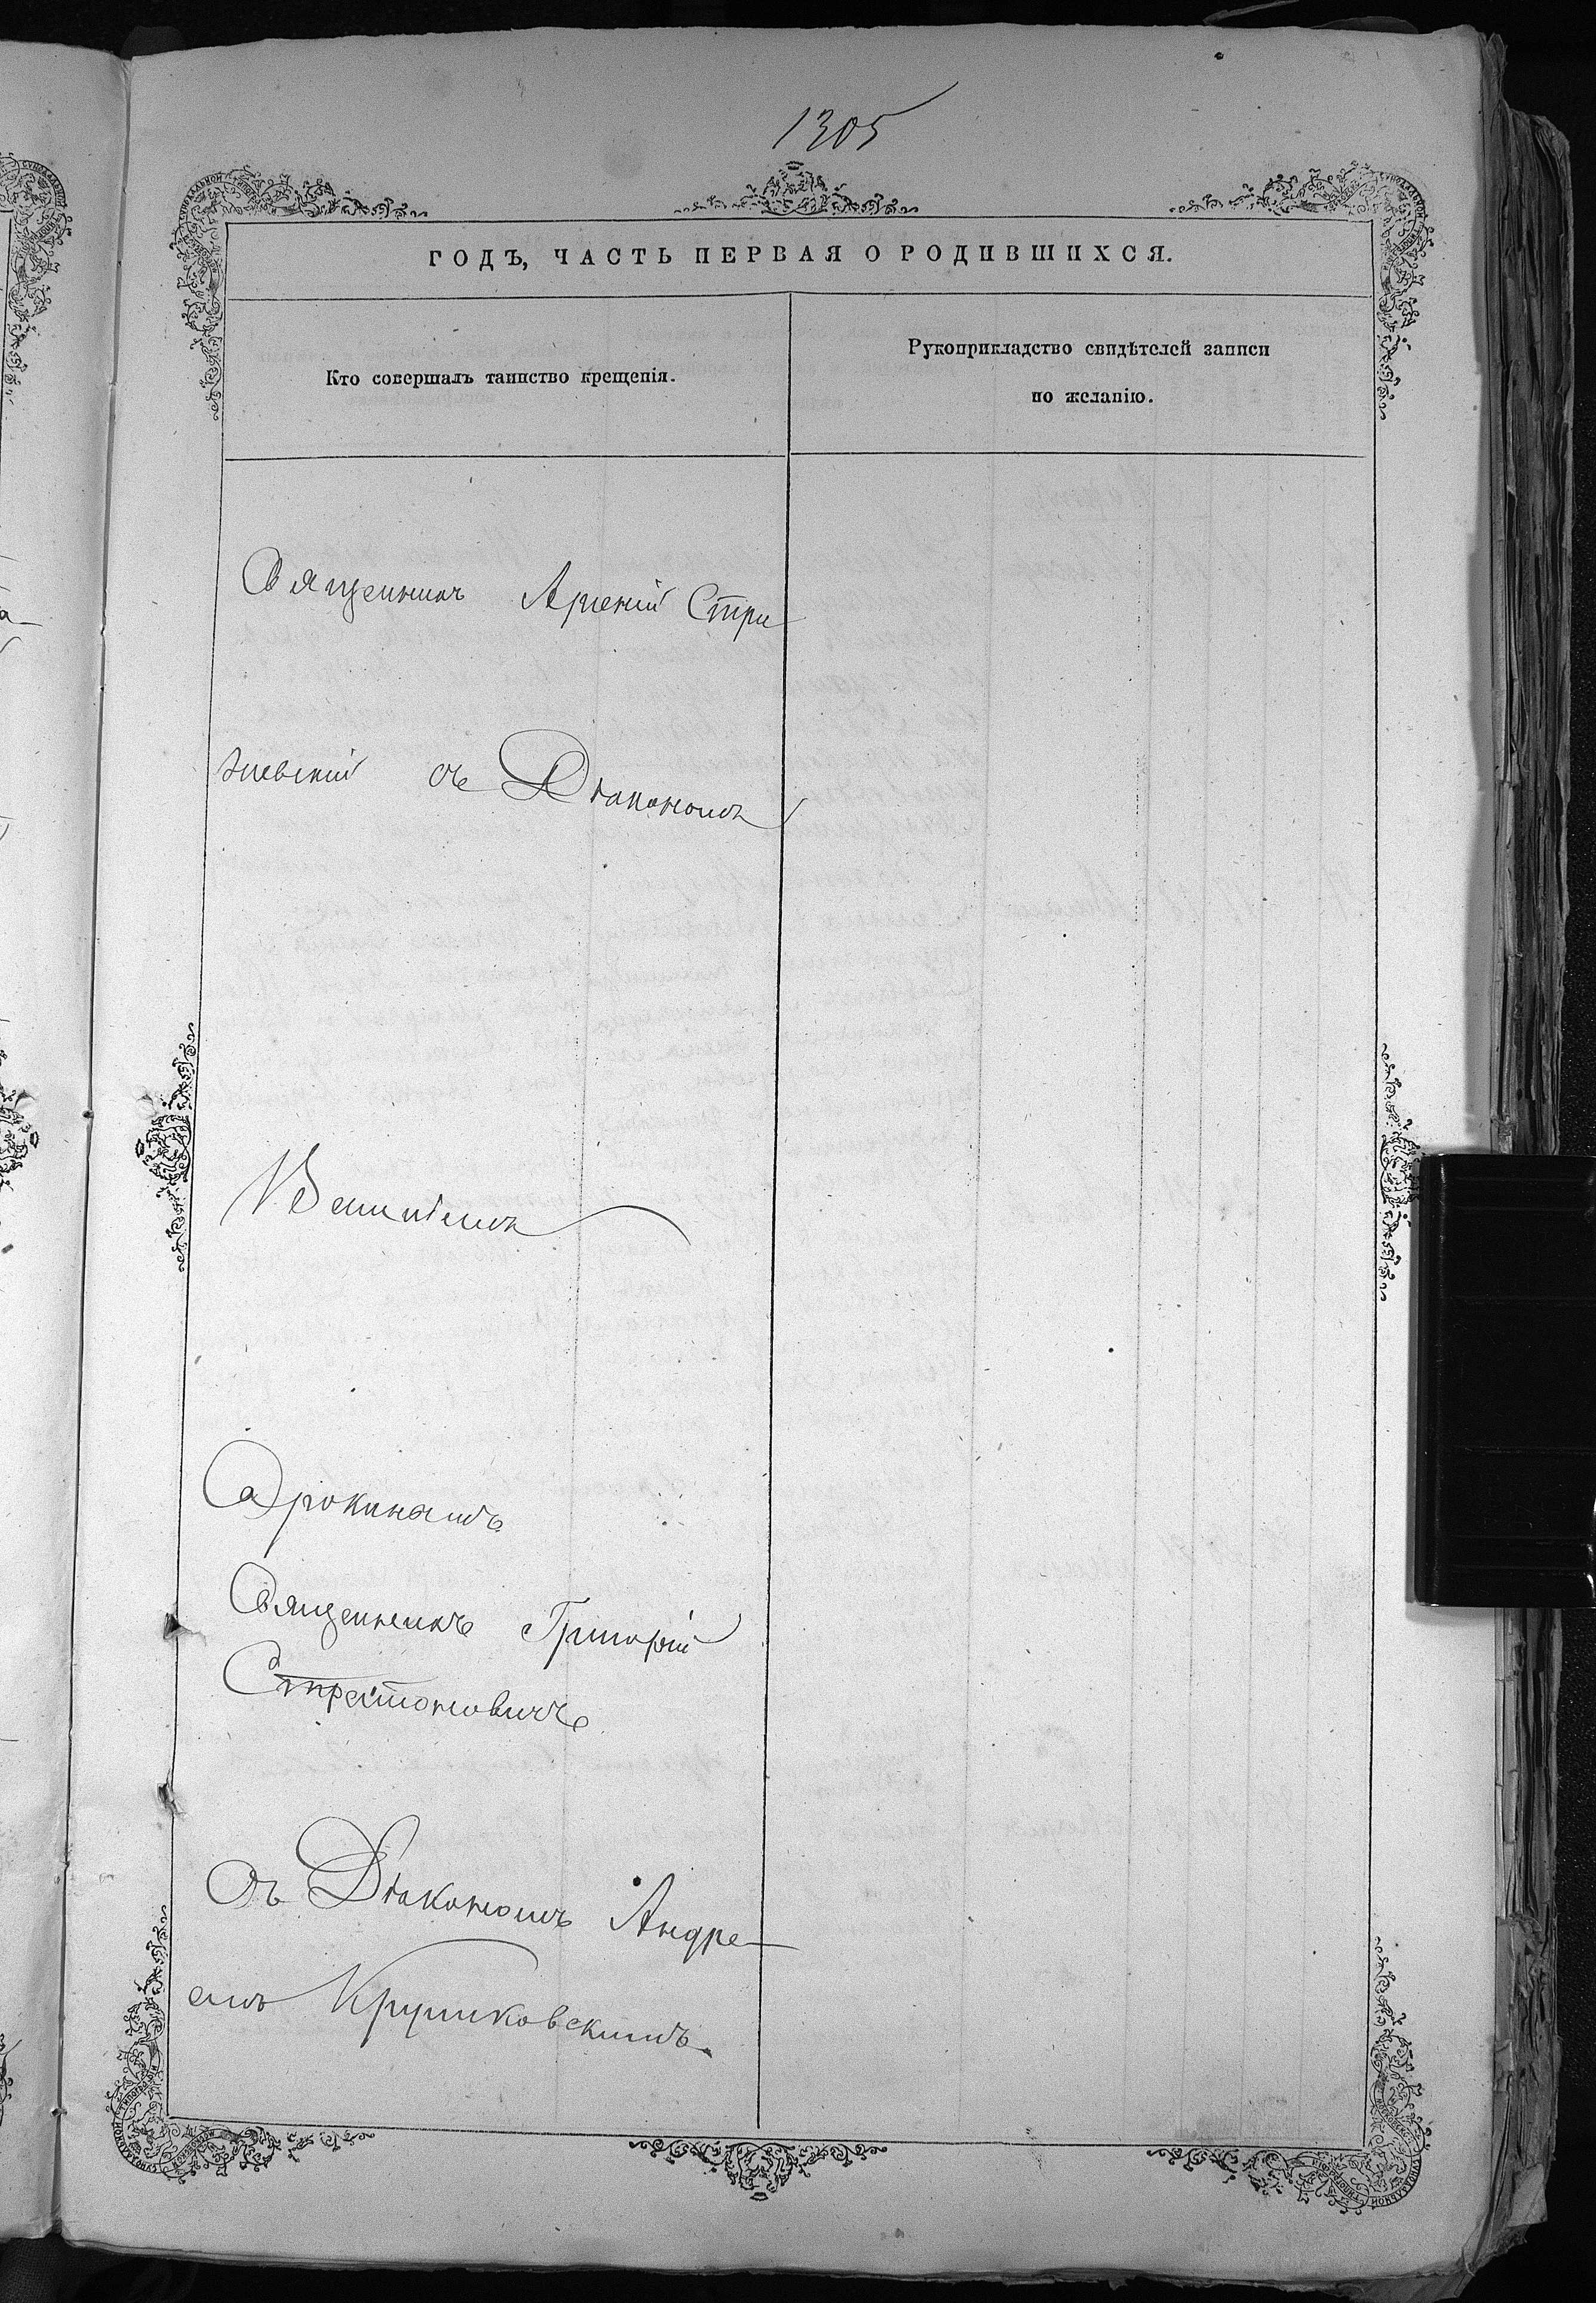 1305
ГОДЪ, ЧАСТЬ ПЕРВАЯ О РОДИВШИХСЯ.
Кто совершалъ таинство крещенія.
Рукоприкладство свидѣтелей записи
по желанію.
Священникъ Арсеній Стри
жевскій съ Діакономъ
Священникъ Григорій
Стратоновичъ
Съ Діакономъ Андре-
емъ Крушковскимъ.